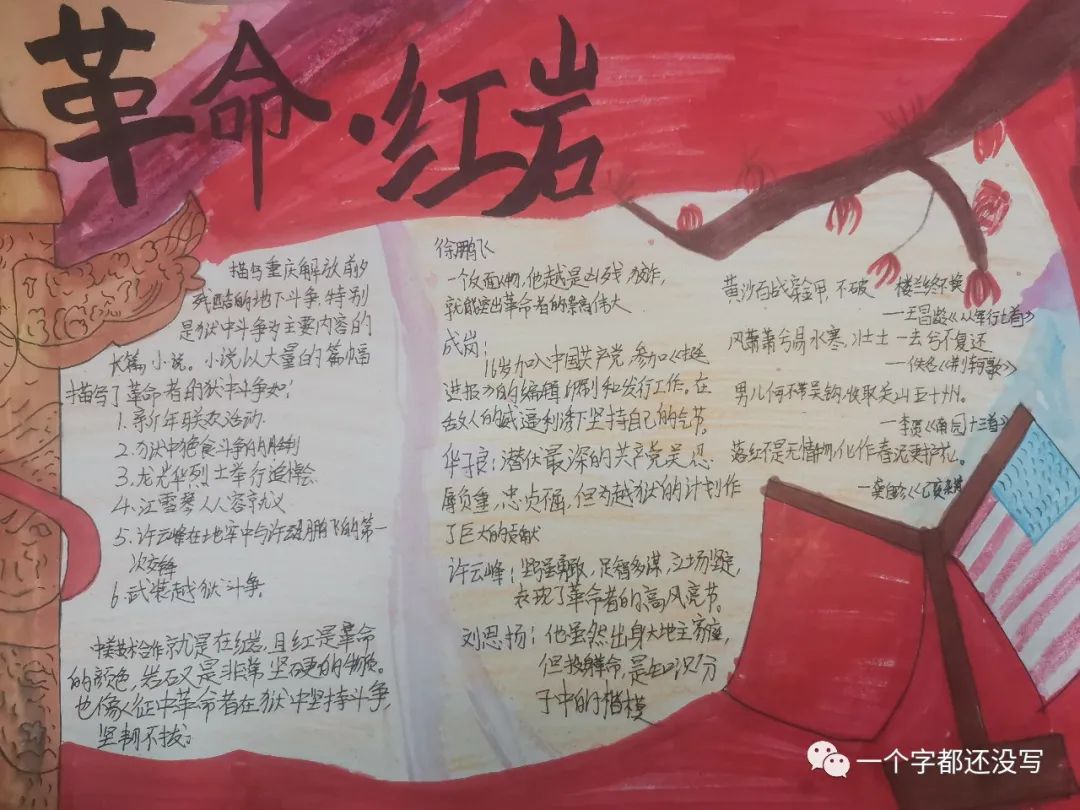 革命·红岩
描写重庆解放前夕
残酷的地下斗争,特别
是狱中斗争为主要内容的
长篇小说。小说以大量的篇幅
描写了革命者的狱中斗争如:
1.新年联欢活动.
2.狱中绝食斗争的胜利
3.龙光华烈士举行追悼会
4.江雪琴从容就义
5.许云峰在地牢中与许鹏飞的第一
次交锋
6.武装越狱斗争.
就是在红岩,且红是革命
的颜色,岩石又是非常坚硬的物质。
也像征中革命者在狱中坚持斗争,
坚韧不拔。
徐鹏飞
一个反面人物,他越是凶残
就能突出革命者的崇高伟大
成岗:
16岁加入中国共产党,参加《挺
进报》的编辑印刷和发行工作。在
敌人的威逼利诱下坚持自己的气节。
华子良:潜伏最深的共产党员忍
辱负重,忠贞不屈,但为越狱的计划作
了巨大的贡献
许云峰:坚强勇敢,足智多谋,立场坚定,
表现了革命者的高风亮节。
刘思扬:他虽然出身大地主家庭,
但投身革命,是知识分
子中的楷模
黄沙百战穿金甲,不破 楼兰终不还
——王昌龄《从军行七首》
风萧萧兮易水寒,壮士一去兮不复还
——佚名《荆轲歌》
男儿何不带吴钩,收取关山五十州。
——李贺《南园十三首》
落红不是无情物,化作春泥更护花。
——龚自珍《己亥杂诗
一个字都还没写